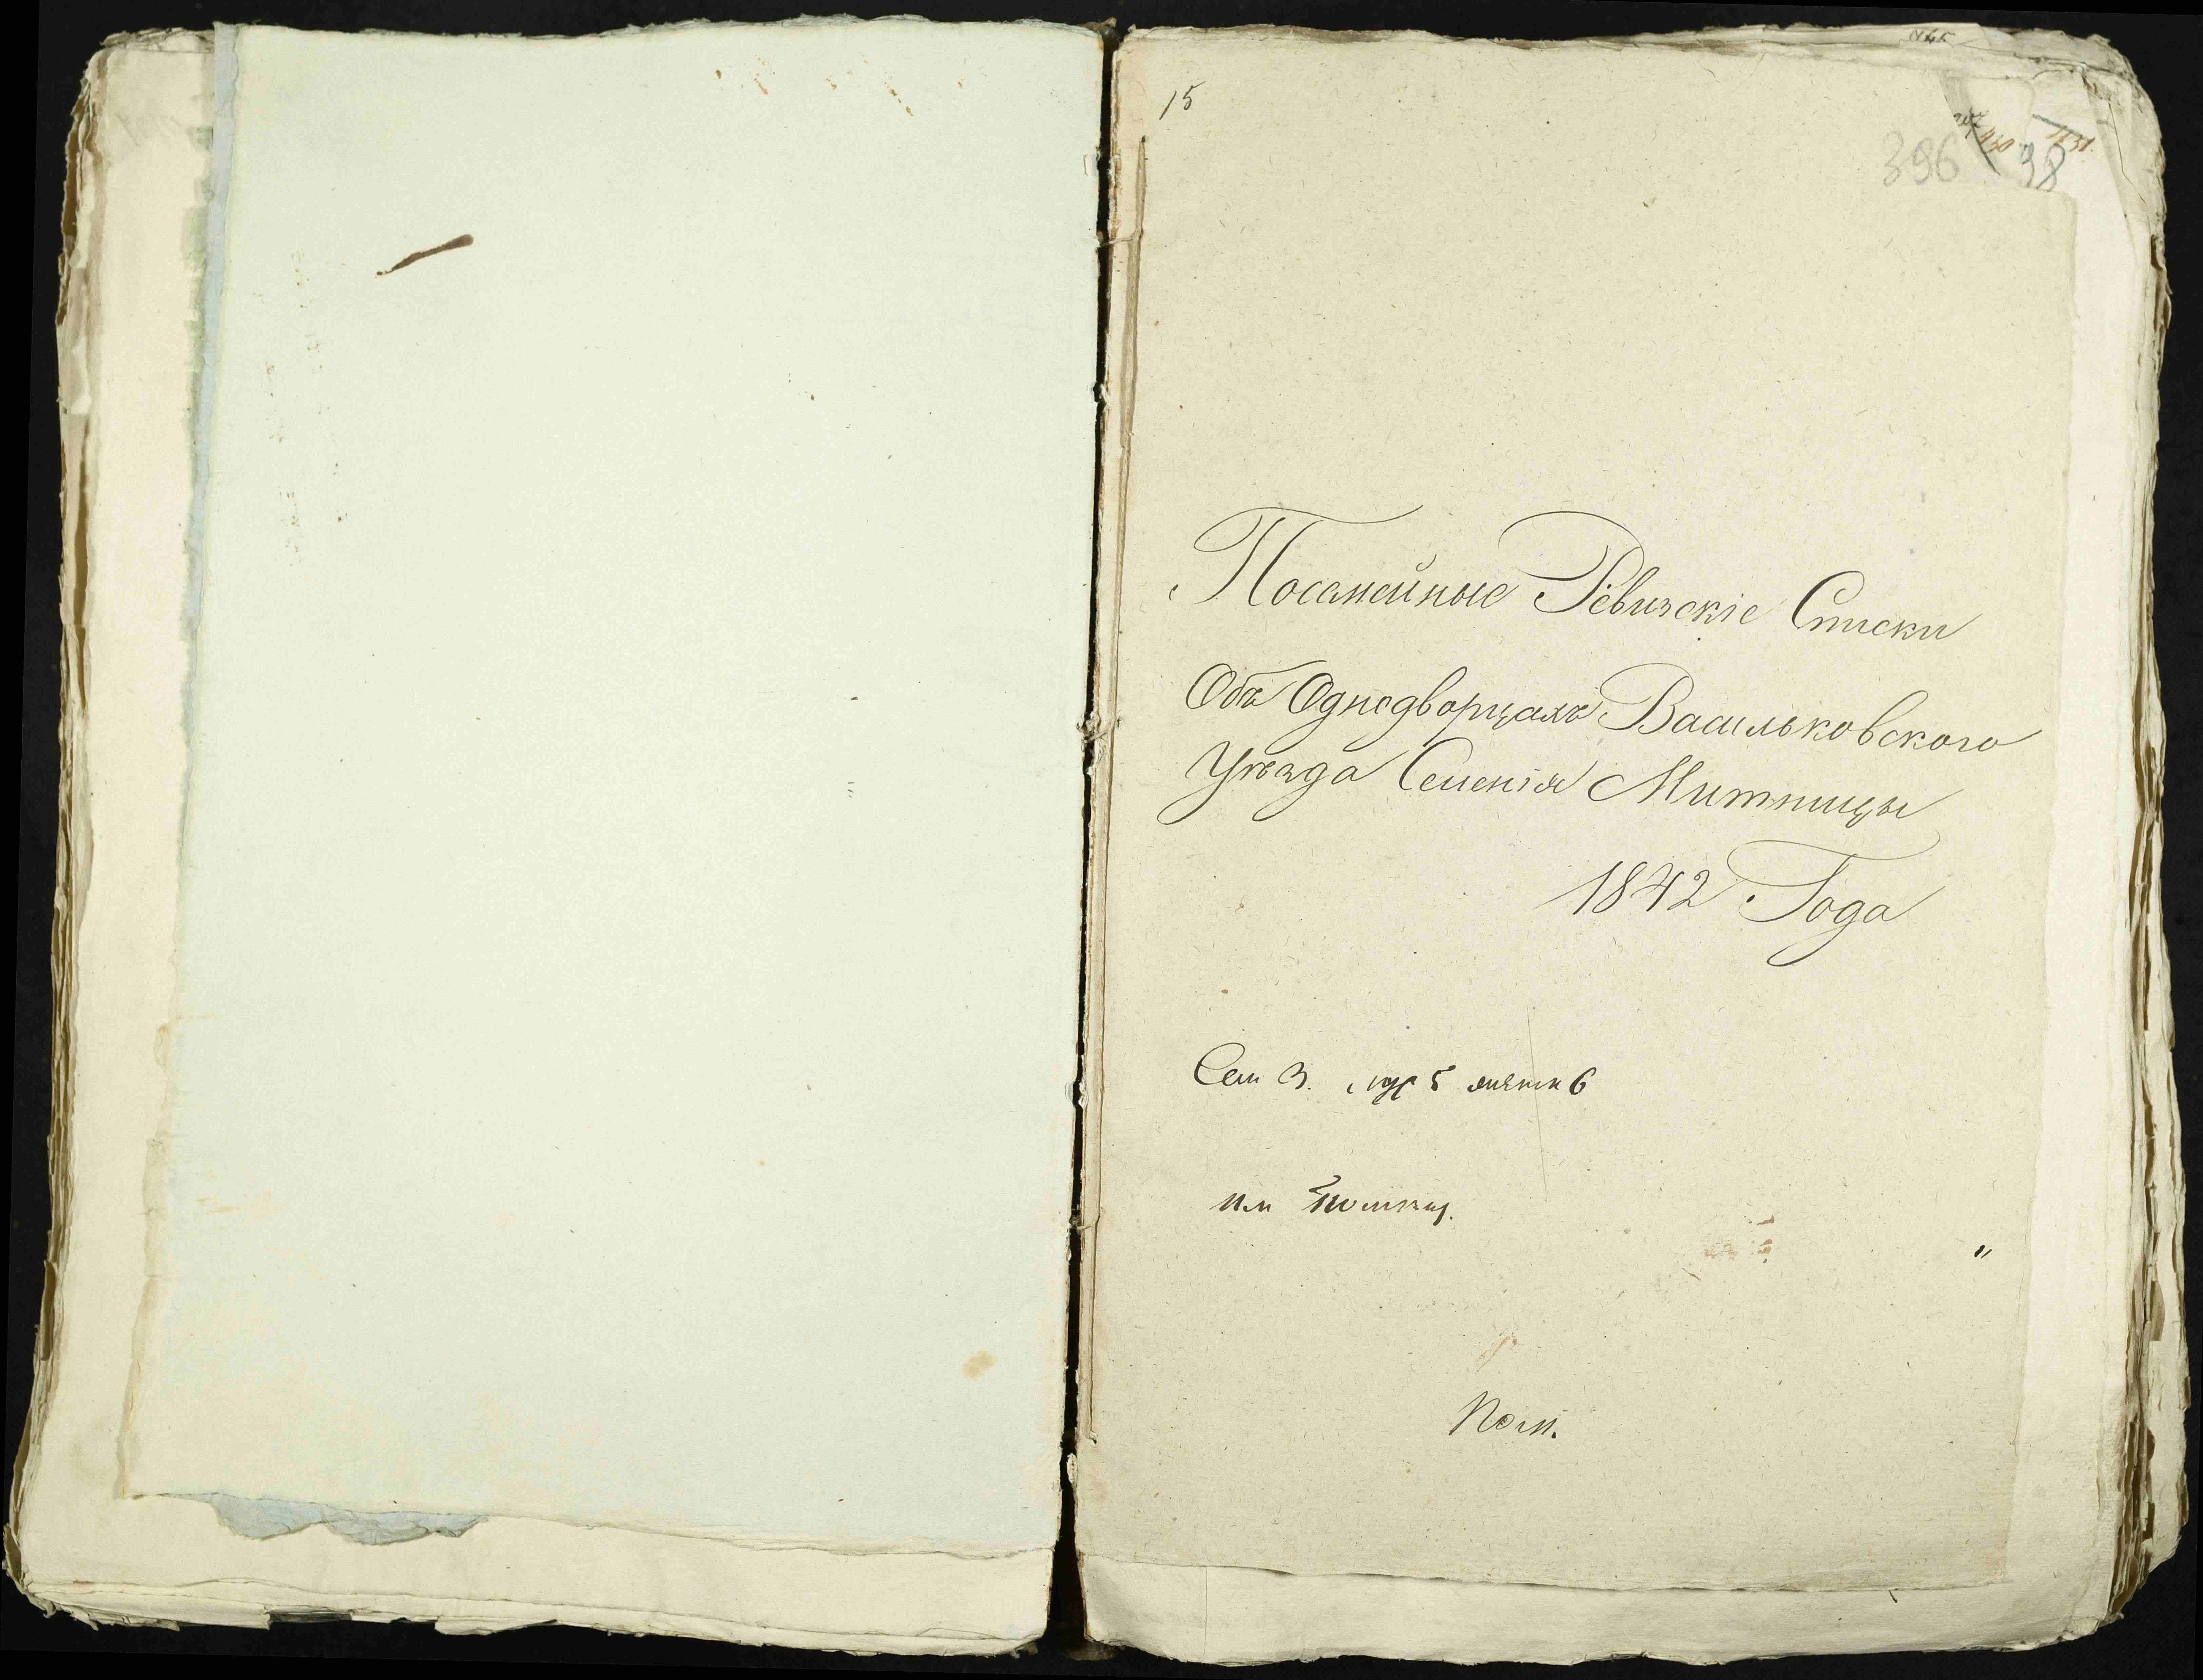 15
396 98
Посемейные Ревизскіе Списки
Объ Однодворцахъ Васильковского
Уѣзда Селенія Митницы
1842 Года
Сем 3. муж 5 женск 6